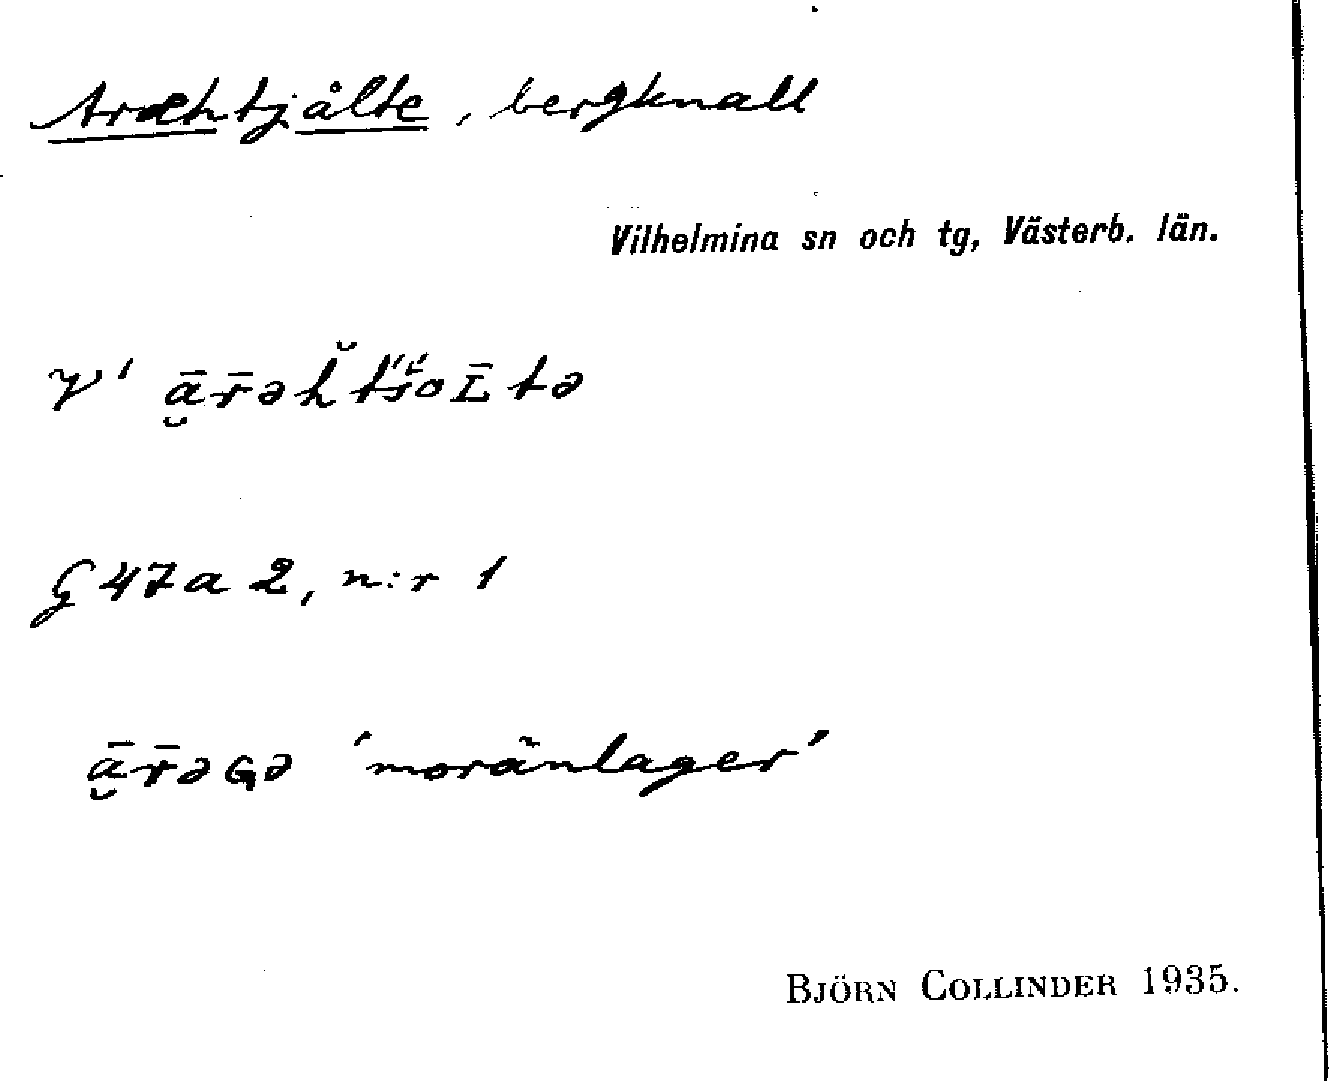 Aræhtjålte, bergknall
Vilhelmina sn och tg, Västerb. län.
G 47 a 2, n:r 1
ā̮r̄əGə 'moränlager'
BJÖRN COLLINDER 1935.